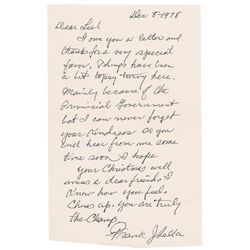 Dec 8-1978
Dear Lee:
I owe you a letter and
thanks for a very special
favor. Things have been
a bit topsy turvy here.
Mainly because of the
Provincial Government
but I can never forget
your kindness so you
will hear from me some
time soon. I hope
your Christmas will
miss a dear friend, I
know how you feel.
Chins up, you are truly
the Champ.
Frank J Selke